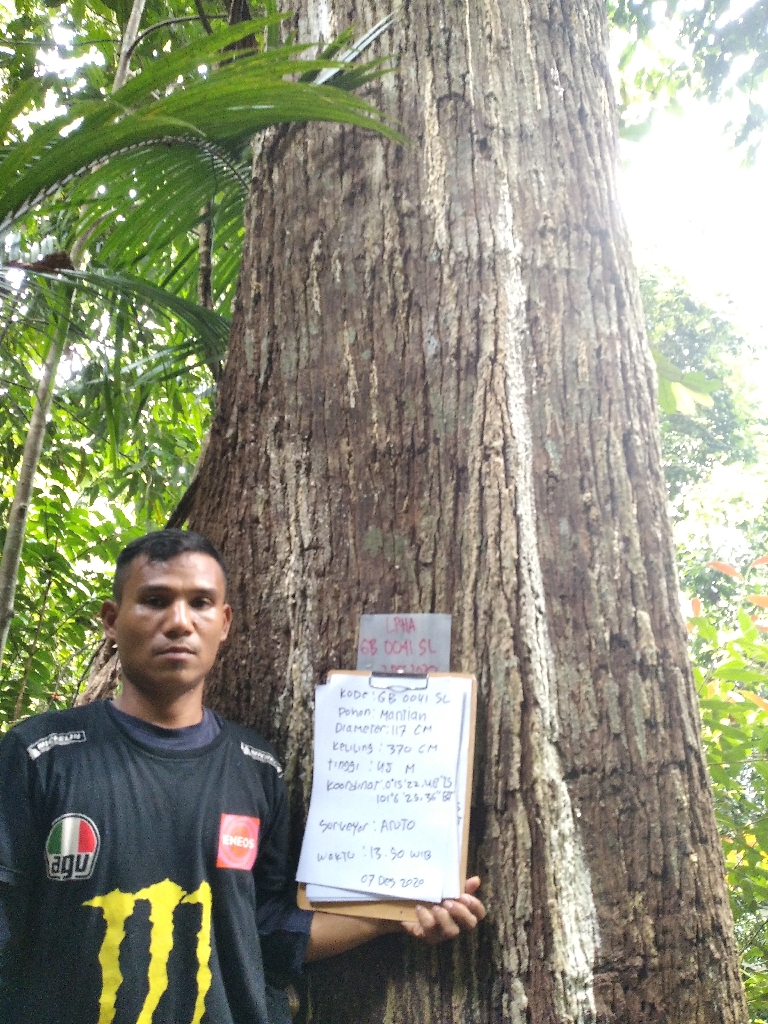 LPHA
GB 0041 SL
Kode : GB 0041 SL
Pohon : Mantian
Diameter : 117 CM
Keliling : 370 CM
tinggi : 45 M
Koordinat
101°6'25.36" BT
Surveyor : Anto
Waktu : 13.50 WIB
07 Des 2020
MICHELIN
agu
ENEOS